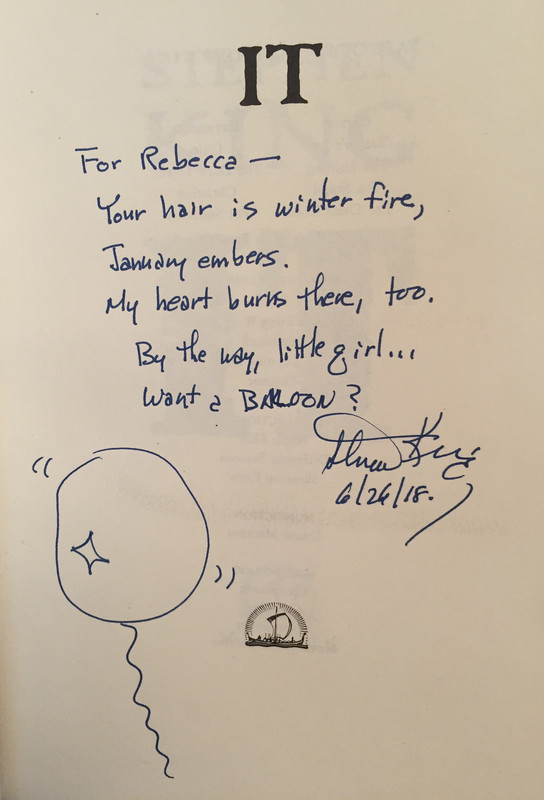 IT
For Rebecca —
Your hair is winter fire,
January embers.
My heart burns there, too.
By the way, little girl...
Want a BALLOON?
Stephen King
6/26/18.